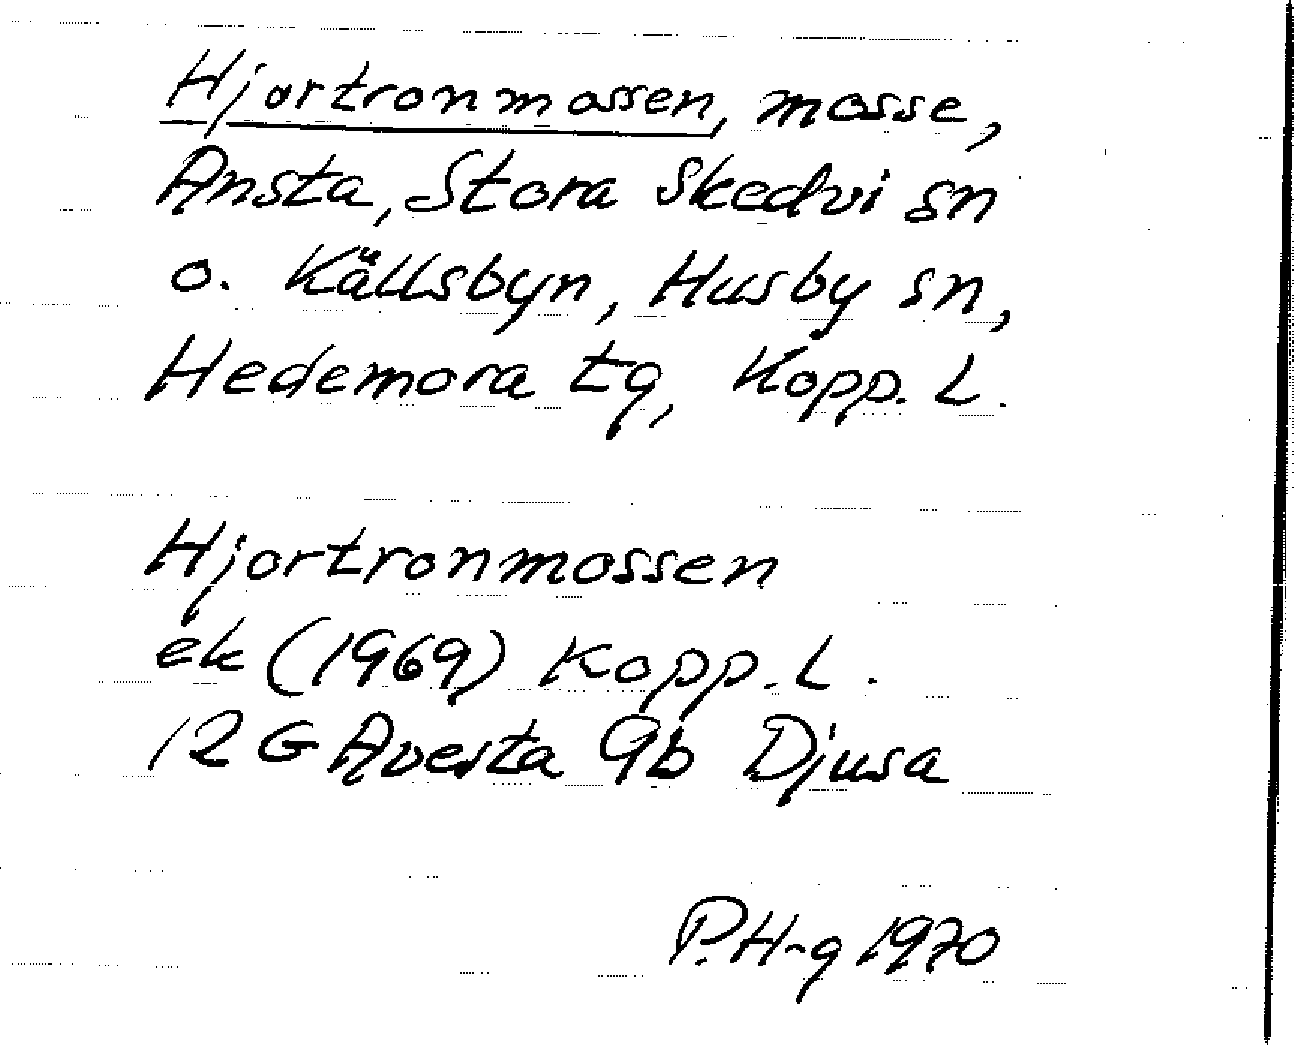 Hjortronmossen, mosse,
Ansta, Stora Skedvi sn
o. Källsbyn, Husby sn,
Hedemora tg, Kopp. L.
Hjortronmossen
ek (1969) Kopp. L.
12 G Avesta 9b Djusa
P.H-g 1970